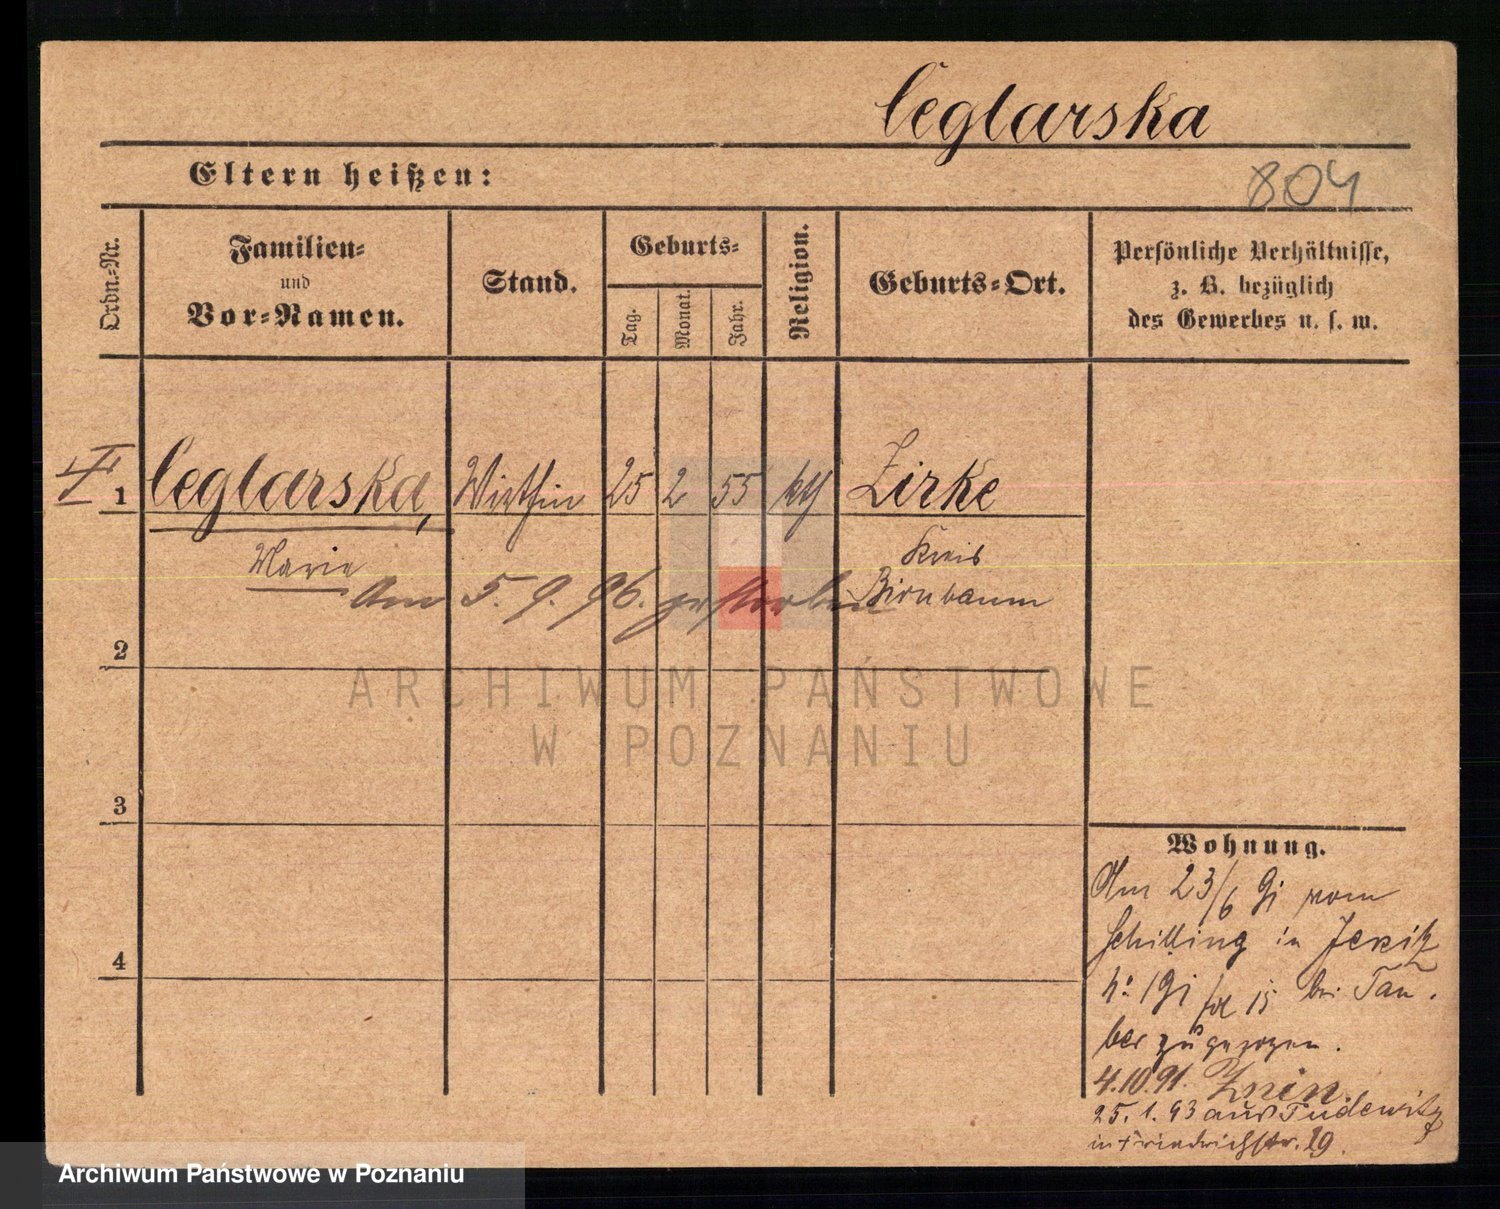 Ceglarska
Eltern heißen:
804
Ordn.-Nr.
Familien-
und
Vor-Namen.
Stand.
Geburts-
Tag.
Monat.
Jahr.
Religion.
Geburts-Ort.
Persönliche Verhältnisse,
z. B. bezüglich
des Gewerbes u. s. w.
1 Ceglarska, Wirthin 25 2 55 kth Zirke
Marie
Kreis
Birnbaum
Am 5. 9. 96. gestorben
2
3
4
ARCHIWUM PAŃSTWOWE
W POZNANIU
Wohnung.
Am 23/6 91 vom
Schilling in Jersitz
15 bei Tau
ber zugezogen.
4.10.91. Znin.
25. 1. 93 aus Pudewitz
in Friedrichstr. 29.
Archiwum Państwowe w Poznaniu